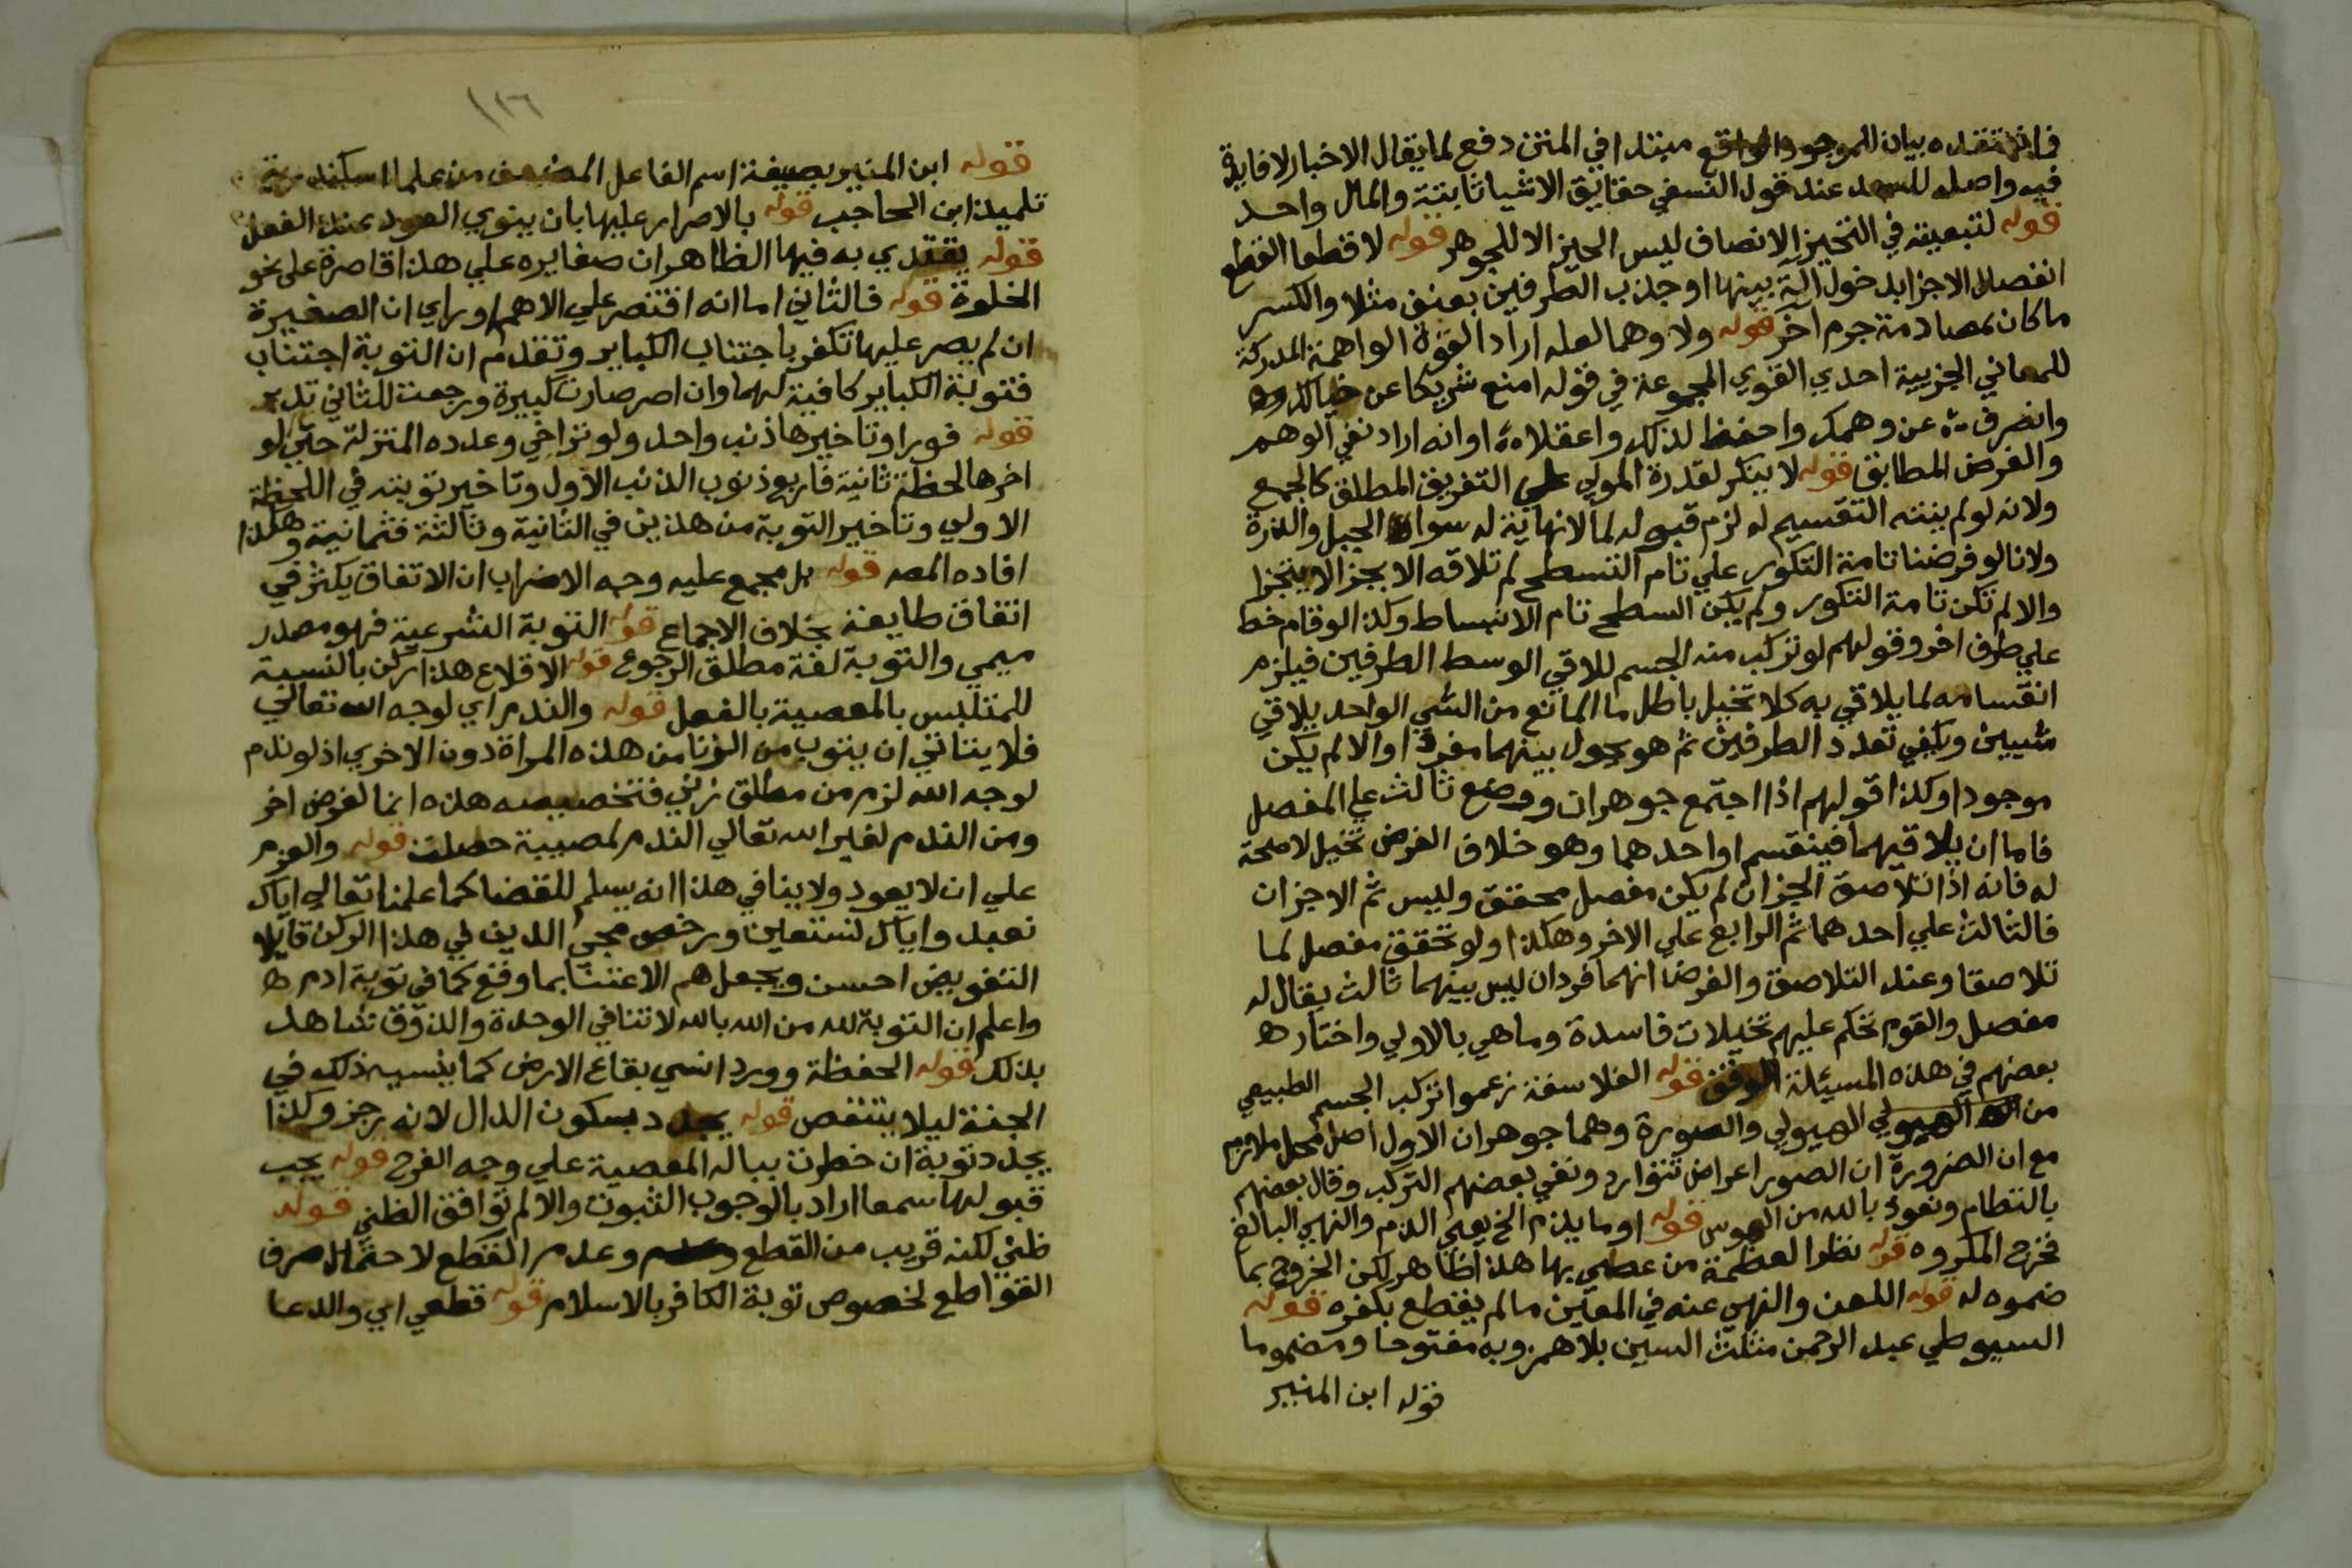 فما نعتقده بيان للموجود الواقع مبتدا في المتن دفع لما يقال الاخبار لا فايدة
فيه واصله للسعد عند قول النسفي حقايق الاشيا ثابتة والمال واحد
قوله لتبعيته في التحيز الانصاف ليس الحيز الا للجوهر قوله لا قطعا القطع
انفصال الاجزا بدخول الة بينها او جذب الطرفين بعنف مثلا والكسر
ما كان بمصادمة جرم اخر قوله ولا وهما لعله اراد القوة الواهمة المدركة
للمعاني الجزيية احدي القوي المجموعة في قوله امنع شريكا عن خيالك وط
وانصرفن عن وهمك واحفظ لذلك واعقلا ه او انه اراد نفي الوهم
والفرض المطابق قوله لا ينكر لقدرة المولي علي التفريق المطلق كالجمع
ولانه لو لم ينته التقسيم له لزم قبوله لما لا نهاية له سوا الجبل والذرة
ولانا لو فرضنا تامة التكور علي تام التسطح لم تلاقه الا بجز لا يتجزا
والا لم تكن تامة التكور ولم يكن السطح تام الانبساط وكذا لو قام خط
علي طرف اخر وقولهم لو تركب منه الجسم للاقي الوسط الطرفين فيلزم
انقسامه لما يلاقي به كلا تخيل باطل ما المانع من الشي الواحد يلاقي
شيئين ويكفي تعدد الطرفين ثم هو يحول بينهما مفردا والا لم يكن
موجودا وكذا قولهم اذا اجتمع جوهران ووضع ثالث علي المفصل
فاما ان يلاقيهما فينقسم او احدهما وهو خلاف الفرض تخيل لا صحة
له فانه اذا تلاصق الجزان لم يكن مفصل محقق وليس ثم الا جزان
فالثالث علي احدهما ثم الرابع علي الاخر وهكذا ولو تحقق مفصل لما
تلاصقا وعند التلاصق والفرض انهما فردان ليس بينهما ثالث يقال له
مفصل والقوم تحكم عليهم تخيلات فاسدة وما هي بالاولي واختار ه
بعضهم في هذه المسئلة الوقف قوله الفلاسفة زعموا تركب الجسم الطبيعي
من الهيولي الهيولي والصورة وهما جوهران الاول اصل محل ملازم
مع ان الضرورة ان الصور اعراض تتوارد ونفي بعضهم التركب وقال بعضهم
بالنظام ونعوذ بالله من الهوس قوله او ما يلزم الخ يعني الذم والنهي البالغ
فخرج المكروه قوله نظرا لعظمة من عصي بها هذا ظاهر لكن الخروج بما
ضموه له قوله اللعن والنهي عنه في المعين ما لم يقطع بكفره قوله
السيوطي عبد الرحمن مثلث السين بلا همز وبه مفتوحا ومضموما
قوله ابن المنير
١٢٦
قوله ابن المنير بصيغة اسم الفاعل المضعف من علما اسكندرية
تلميذ ابن الحاجب قوله بالاصرار عليها بان ينوي العود عند الفعل
قوله يقتدي به فيها الظاهر ان صغايره علي هذا قاصرة علي نحو
الخلوة قوله فالثاني اما انه اقتصر علي الاهم او راي ان الصغيرة
ان لم يصر عليها تكفر باجتناب الكباير وتقدم ان التوبة اجتناب
فتوبة الكباير كافية لهما وان اصر صارت كبيرة ورجعت للثاني تدبر
قوله فورا وتاخيرها ذنب واحد ولو تراخي وعدده المعتزلة حتي لو
اخرها لحظة ثانية فاربع ذنوب الذنب الاول وتاخير توبته في اللحظة
الاولي وتاخير التوبة من هذين في الثانية وثالثة فثمانية وهكذا
افاده المصه قوله بل مجمع عليه وجه الاضراب ان الاتفاق يكثر في
اتفاق طايفة بخلاف الاجماع قوله التوبة الشرعية فهو مصدر
ميمي والتوبة لغة مطلق الرجوع قوله الاقلاع هذا ركن بالنسبة
للمتلبس بالمعصية بالفعل قوله والندم اي لوجه الله تعالي
فلا يتاتي ان يتوب من الزنا من هذه المراة دون الاخري اذ لو ندم
لوجه الله لزم من مطلق زني فتخصيصه هذه انما لغرض اخر
ومن الندم لغير الله تعالي الندم لمصيبة حصلت قوله والعزم
علي ان لا يعود ولا ينافي هذا انه يسلم للقضا كما علمنا تعالي اياك
نعبد واياك نستعين ورخص محي الدين في هذا الركن قايلا
التفويض احسن ويجعل هم الاعتنا بما وقع كما في توبة ادم ه
واعلم ان التوبة لله من الله بالله لا تنافي الوحدة والذوق شاهد
بذلك قوله الحفظة وورد انسي بقاع الارض كما ينسيه ذلك في
الجنة ليلا يتنغص قوله يجدد بسكون الدال لانه رجز وكذا
يجدد توبة ان خطرت بباله المعصية علي وجه الفرح قوله يجب
قبولها سمعا اراد بالوجوب الثبوت والا لم توافق الظني قوله
ظني لكنه قريب من القطع وعدم القطع لاحتمال صرف
القواطع لخصوص توبة الكافر بالاسلام قوله قطعي اي والدعا